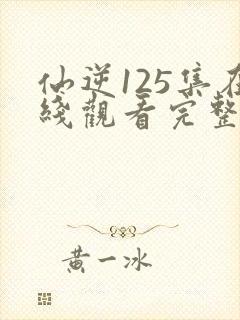 仙逆125集在
綫觀看完整
黃一冰